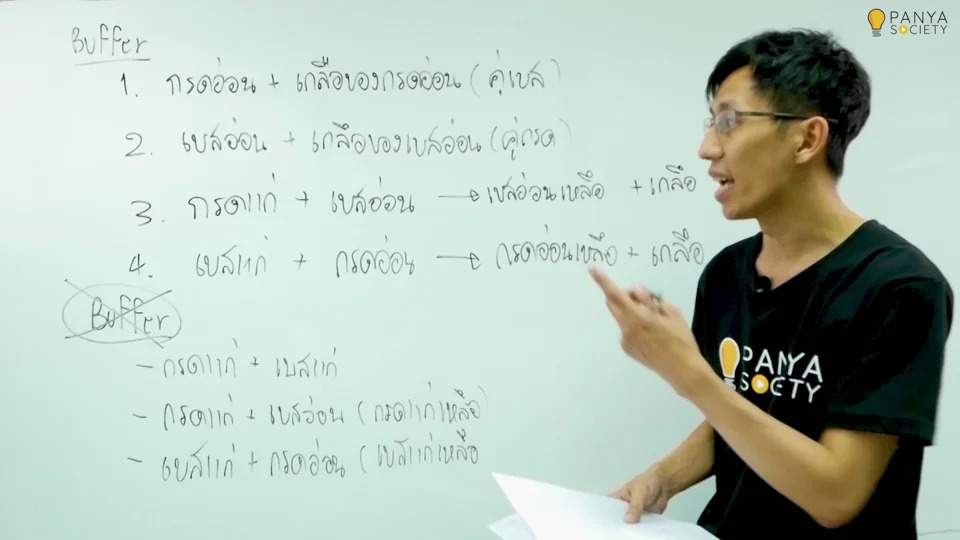 Buffer
1. กรดอ่อน + เกลือของกรดอ่อน (คู่เบส)
2. เบสอ่อน + เกลือของเบสอ่อน (คู่กรด)
3. กรดแก่ + เบสอ่อน → เบสอ่อนเหลือ + เกลือ
4. เบสแก่ + กรดอ่อน → กรดอ่อนเหลือ + เกลือ
Buffer
- กรดแก่ + เบสแก่
- กรดแก่ + เบสอ่อน (กรดแก่เหลือ)
- เบสแก่ + กรดอ่อน (เบสแก่เหลือ
PANYA
SOCIETY
PANYA
SOCIETY